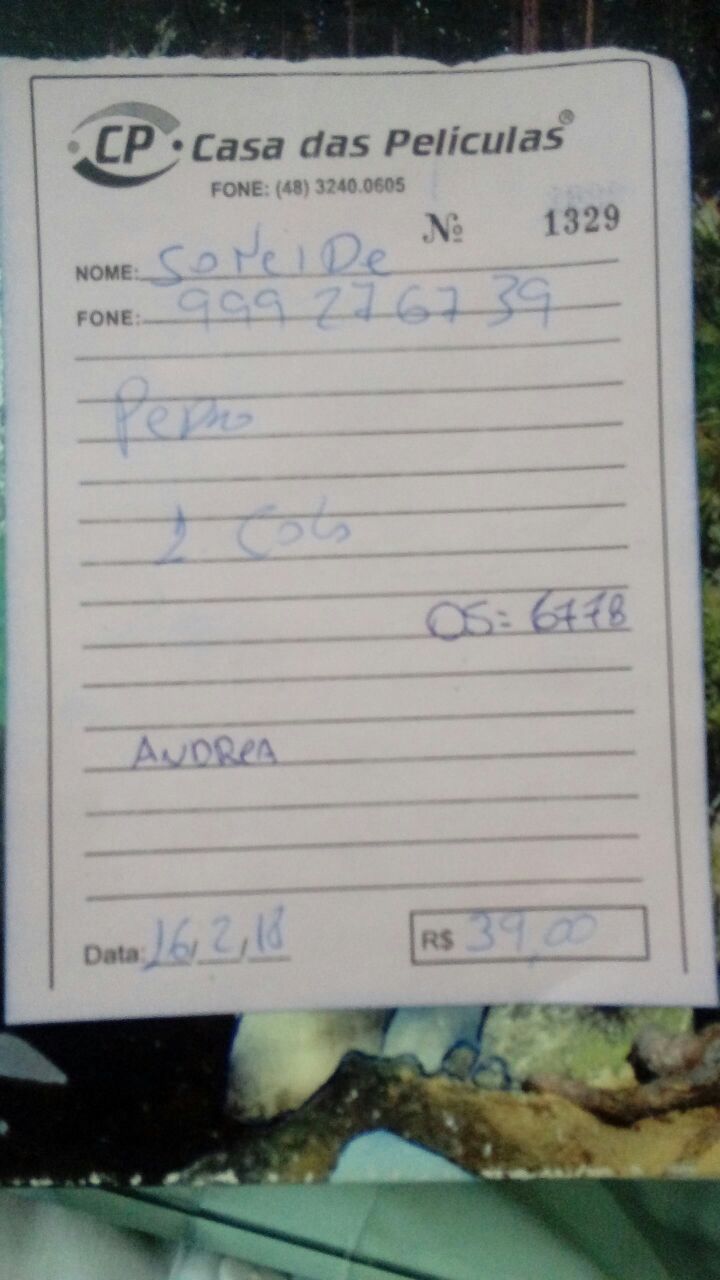 CP Casa das Películas®
FONE: (48) 3240.0605
Nº 1329
NOME:
FONE: 999 27 67 39
OS= 6778
ANDREA
Data: 16, 2, 18
R$ 39,00